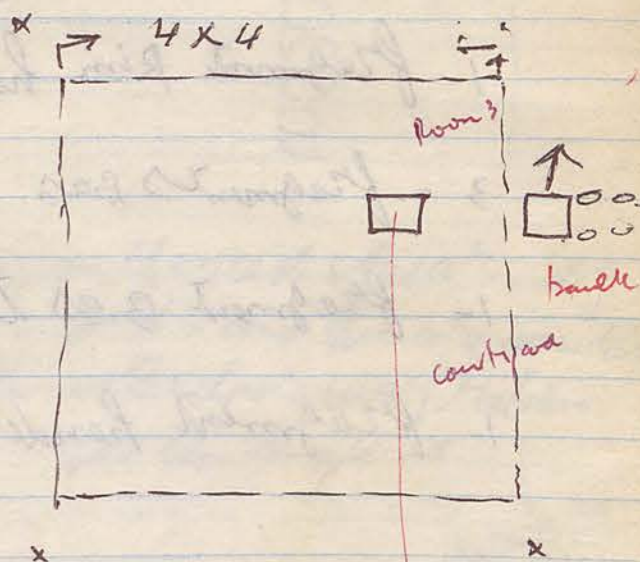 4 x 4
Room 3
baulk
courtyard